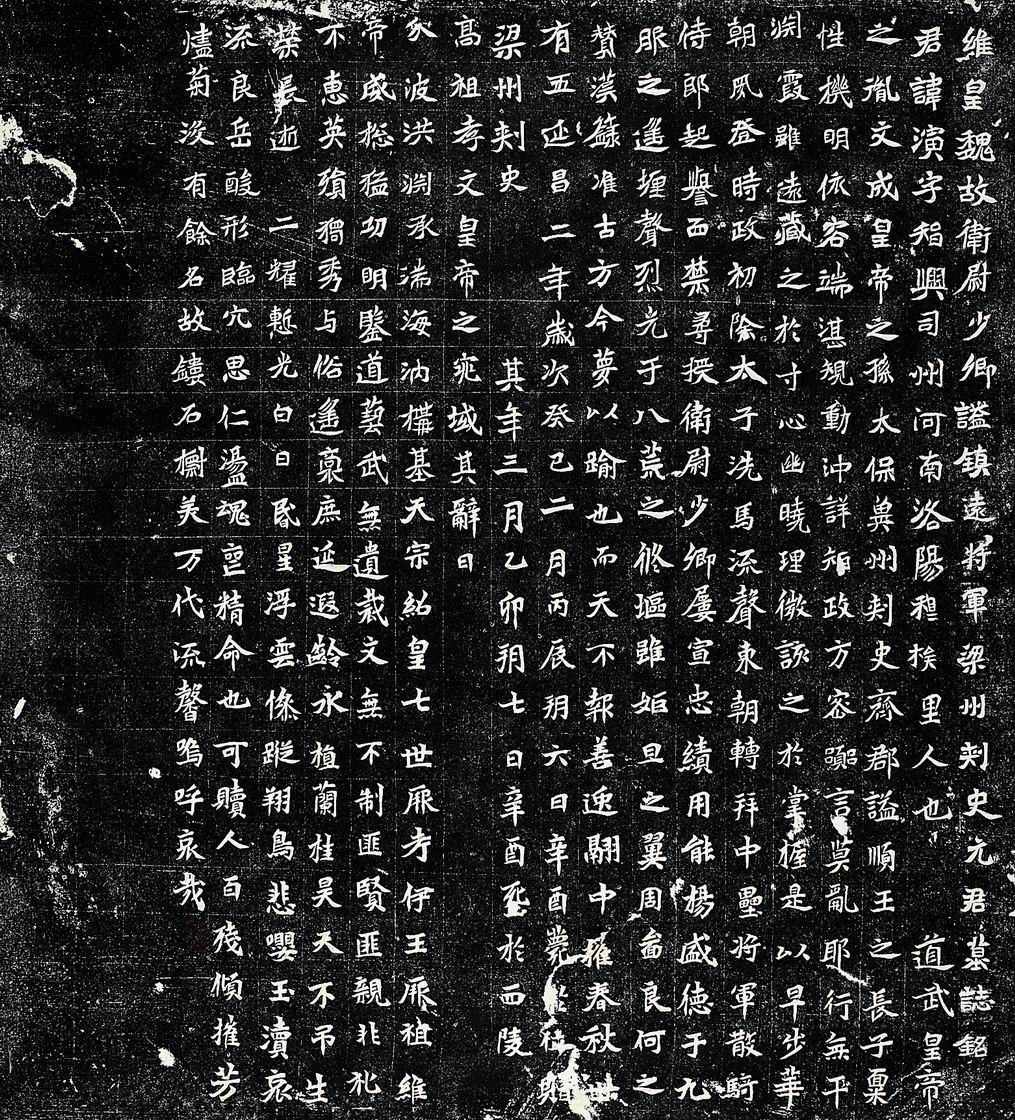 維皇魏故衛尉少卿謚鎮遠將軍梁州刾史元君墓誌銘
君諱演字智興司州河南洛陽穆族里人也道武皇帝
之胤文成皇帝之孫太保兾州刾史齊郡謚順王之長子稟
性機明依容端湛規動沖詳知政方容嘿言莫亂耶行無平
渊霞雖遠藏之於寸心幽曉理微該之於掌握是以早步華
朝夙登時政初除太子洗馬流聲東朝轉拜中壘將軍散騎
侍郎起譽西禁尋授衛尉少卿屢宣忠績用能楊盛德于九
服之遥堙聲烈光于八荒之脩堰雖姤旦之翼周畨良何之
賛漢籙准古方今夢以踰也而天不報善逸翮中摧春秋卅
有五延昌二年歲次癸巳二月丙辰朔六日辛酉薨
梁州刾史其年三月乙卯朔七日辛酉于於西陵
髙祖孝文皇帝之兆域其辭曰
派波洪渊承湍海汭構基天宗紹皇七世厥考伊王厥祖維
帝咸捴猛功明鑒道藝武無遺裁文無不制匪賢匪親非礼
不惠英殞獨秀与俗遥稟庶延遐齡永植蘭桂昊天不弔生
榮長逝二耀慙光白日昏星浮雲絛蹤翔鳥悲嚶玉瀆哀
流良岳酸形臨穴思仁盪魂亶精命也可贖人百殘傾摧芳
燼菊没有餘名故鏤石櫥美万代流馨嗚呼哀哉